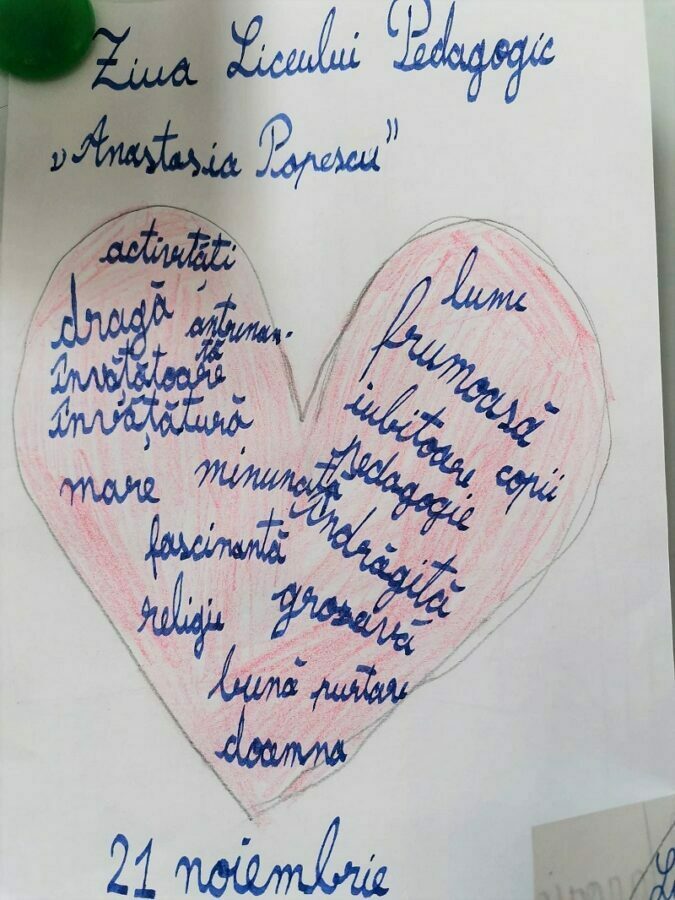 Ziua Liceului Pedagogic
„Anastasia Popescu"
activități
dragă antrenan-
tă
învățătoare
învățătură
mare minunată
fascinantă
religie
lume
frumoasă
iubitoare copii
pedagogie
îndrăgită
grozavă
bună purtare
doamna
21 noiembrie